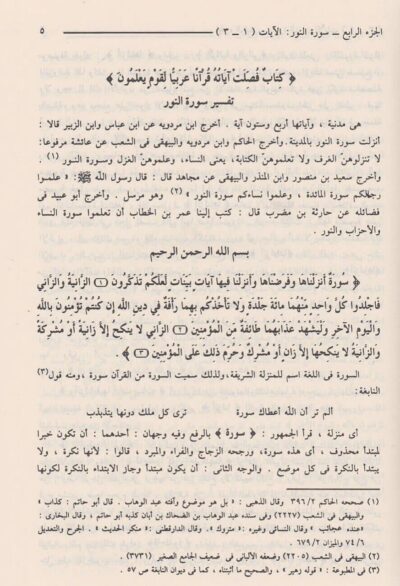 الجزء الرابع ـ سورة النور: الآيات ( ١ ـ ٣ ) ٥
﴿ كِتَابٌ فُصِّلَتْ آيَاتُهُ قُرْآنًا عَرَبِيًّا لِقَوْمٍ يَعْلَمُونَ ﴾
تفسير سورة النور
هى مدنية ، وآياتها أربع وستون آية . أخرج ابن مردويه عن ابن عباس وابن الزبير قالا :
أنزلت سورة النور بالمدينة. وأخرج الحاكم وابن مردويه والبيهقى فى الشعب عن عائشة مرفوعا:
لا تنزلوهنّ الغرف ولا تعلموهنّ الكتابة، يعنى النساء، وعلموهنّ الغزل وسورة النور (١) .
وأخرج سعيد بن منصور وابن المنذر والبيهقى عن مجاهد قال : قال رسول الله ﷺ: « علموا
رجالكم سورة المائدة ، وعلموا نساءكم سورة النور » (٢) وهو مرسل . وأخرج أبو عبيد فى
فضائله عن حارثة بن مضرب قال : كتب إلينا عمر بن الخطاب أن تعلموا سورة النساء
والأحزاب والنور .
بسم الله الرحمن الرحيم
﴿ سُورَةٌ أَنزَلْنَاهَا وَفَرَضْنَاهَا وَأَنزَلْنَا فِيهَا آيَاتٍ بَيِّنَاتٍ لَّعَلَّكُمْ تَذَكَّرُونَ ﴿١﴾ الزَّانِيَةُ وَالزَّانِي
فَاجْلِدُوا كُلَّ وَاحِدٍ مِّنْهُمَا مِائَةَ جَلْدَةٍ وَلا تَأْخُذْكُم بِهِمَا رَأْفَةٌ فِي دِينِ اللَّهِ إِن كُنتُمْ تُؤْمِنُونَ بِاللَّهِ
وَالْيَوْمِ الآخِرِ وَلْيَشْهَدْ عَذَابَهُمَا طَائِفَةٌ مِّنَ الْمُؤْمِنِينَ ﴿٢﴾ الزَّانِي لا يَنكِحُ إِلاَّ زَانِيَةً أَوْ مُشْرِكَةً
وَالزَّانِيَةُ لا يَنكِحُهَا إِلاَّ زَانٍ أَوْ مُشْرِكٌ وَحُرِّمَ ذَلِكَ عَلَى الْمُؤْمِنِينَ ﴿٣﴾ ﴾ .
السورة فى اللغة اسم للمنزلة الشريفة،ولذلك سميت السورة من القرآن سورة ،ومنه قول(٣)
النابغة:
ألم تر أن الله أعطاك سورة ترى كل ملك دونها يتذبذب
أى منزلة ، قرأ الجمهور : ﴿ سورة ﴾ بالرفع وفيه وجهان : أحدهما : أن تكون خبرا
لمبتدأ محذوف ، أى هذه سورة، ورجحه الزجاج والفراء والمبرد ، قالوا : لأنها نكرة ، ولا
يبتدأ بالنكرة فى كل موضع . والوجه الثانى : أن يكون مبتدأ وجاز الابتداء بالنكرة لكونها
(١) صححه الحاكم ٢/ ٣٩٦ وقال الذهبى : « بل هو موضوع وآفته عبد الوهاب . قال أبو حاتم : كذاب »
والبيهقى فى الشعب (٢٢٢٧) وفى سنده عبد الوهاب بن الضحاك بن أبان كذبه أبو حاتم ، وقال البخارى :
«عنده عجائب » وقال النسائى وغيره: «متروك». وقال الدارقطنى: «منكر الحديث » . الجرح والتعديل
٦/ ٧٤ والميزان ٢/ ٦٧٩ .
(٢) البيهقى فى الشعب (٢٢٠٥) وضعفه الألبانى فى ضعيف الجامع الصغير (٣٧٣١) .
(٣) فى المطبوعة : « قوله زهير » ، والصحيح ما أثبتناه ، كما فى ديوان النابغة ص ٥٧ .